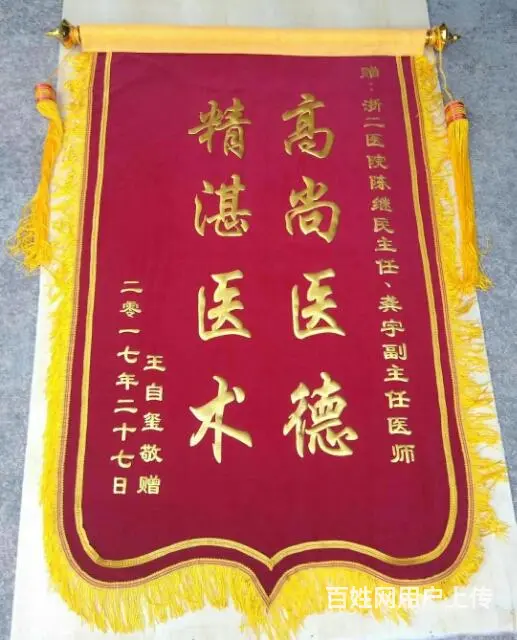 赠：浙二医院陈继民主任、龚宇副主任医师
高尚医德
精湛医术
王自玺敬赠
二零一七年二十七日
百姓网用户上传